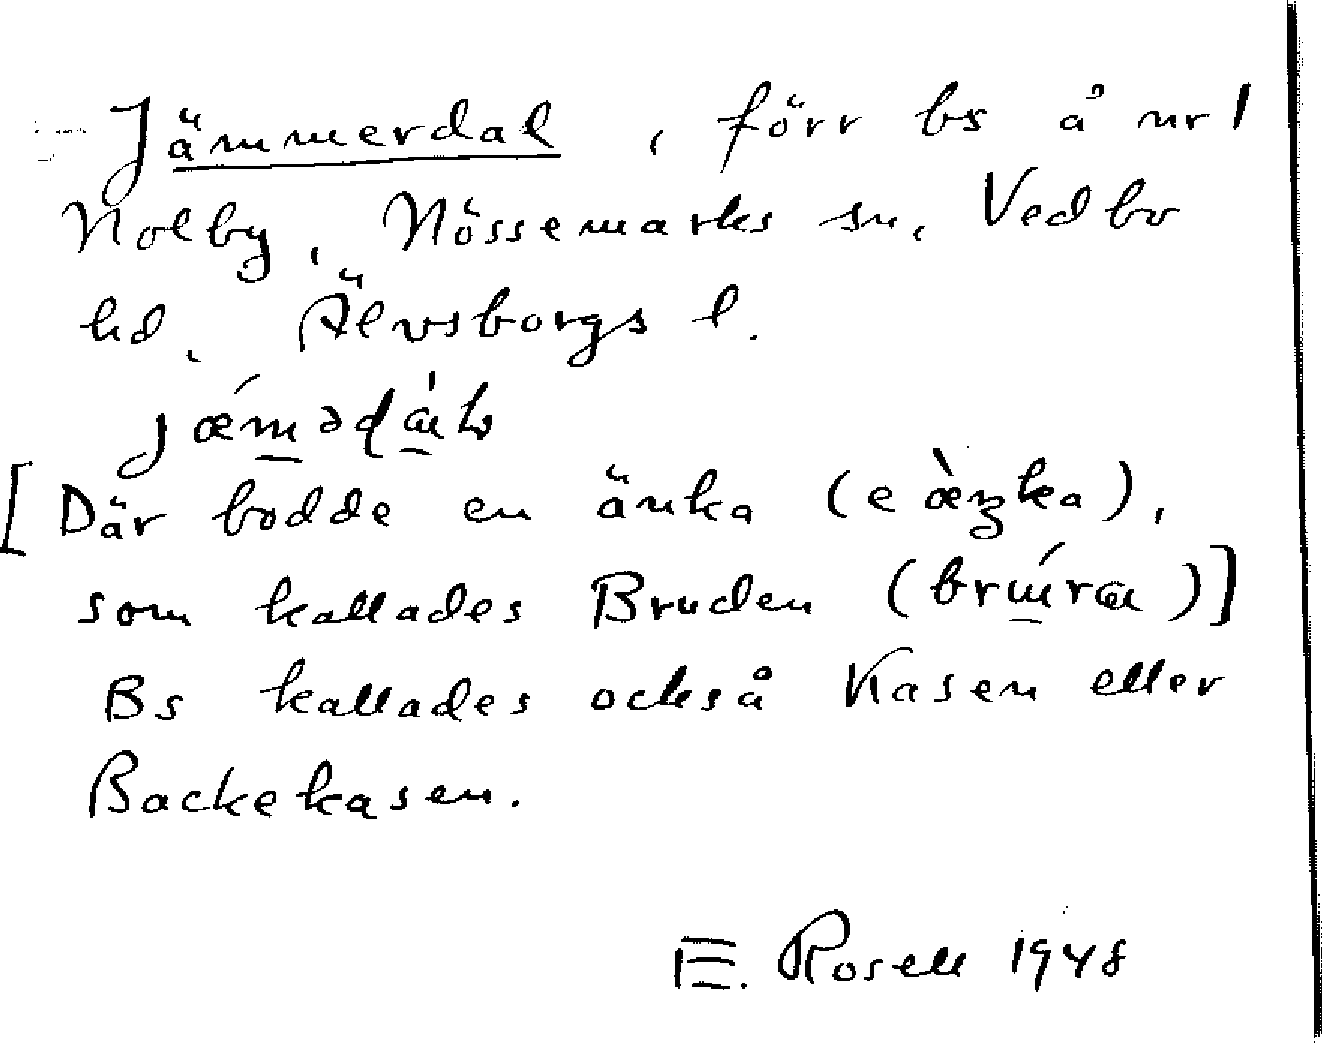 Jämmerdal, förr bs å nr 1
Nolby, Nössemarks sn, Vedbo
hd, Älvsborgs l.
[Där bodde en änka (e
som kallades Bruden
Bs kallades också Kasen eller
Backekasen.
E. Rosell 1948